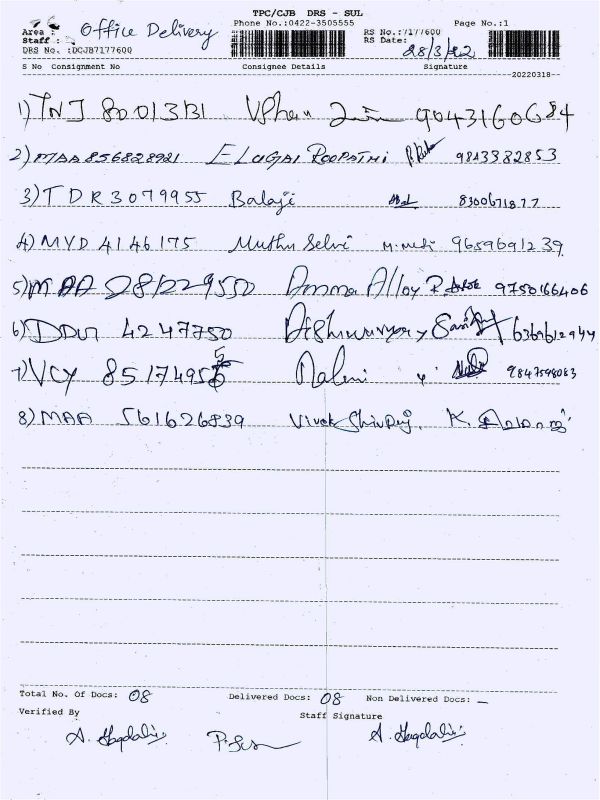 TPC/CJB DRS - SUL
Phone No.:0422-3505555 Page No.:1
Area : Office Delivery
Staff :
RS No.:7177600
DRS No. :DCJB7177600
RS Date: 28/3/22
S No Consignment No Consignee Details Signature
20220318--
1) TNJ 80013131 9043160684
2) MAA 856828921 ELUGAI BOOPATHI 9843382853
3) TDR 3079955 Balaji 8300671877
4) MYD 4146175 Muthu Selvi 9659691239
5) MAA 281229550 Amma Alloy 9750166406
6) 4247750 6369612944
7) VCY 85174955 Nalini 9847598083
8) MAA 561626839 Vivek Shivraj. K.
Total No. Of Docs: 08 Delivered Docs: 08 Non Delivered Docs: —
Verified By Staff Signature